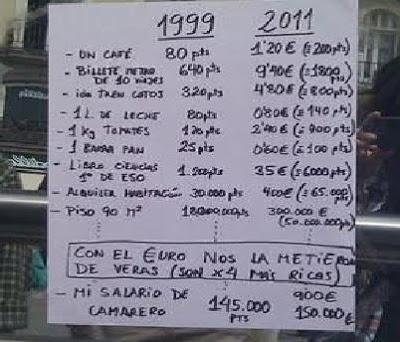 1999 2011
- UN CAFÉ 80 pts 1'20€ (=200pts)
- BILLETE METRO DE 10 VIAJES 640 pts 9'40€ (=1800 pts)
- IDA TREN COTOS 320 pts 4'80€ (=800pts)
- 1 L. DE LECHE 80pts 0'80€ (=140 pts)
- 1 Kg TOMATES 120 pts 2'40€ (=900 pts)
- 1 BARRA PAN 25pts 0'60€ (=100 pts)
- LIBRO CIENCIAS 1º DE ESO 1.200pts 35€ (=6000pts)
- ALQUILER HABITACIÓN 30.000 pts 400€ (=65.000 pts)
- PISO 90 M² 300.000 € (50.000.000 pts)
CON EL EURO NOS LA METIERON
DE VERAS (SON x4 MAS RICAS)
- MI SALARIO DE CAMARERO 145.000 PTS 900€ 150.000